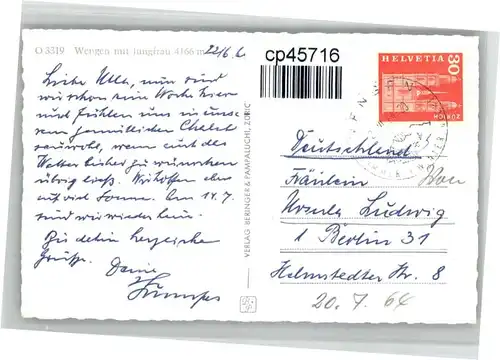 O 3319 Wengen mit Jungfrau 4166 m
22/6.6
cp45716
HELVETIA
30
ZÜRICH
Liebe Ulla, nun sind
wir schon eine Woche hier
und fühlen uns in unse-
rem gemütlichen Chalet
sauwohl, wenn auch das
Wetter bisher zu wünschen
übrig liess. Wir hoffen aber
auf viel Sonne. Am 14.7.
sind wir wieder heim.
Für dich herzliche
Grüsse. Deine
VERLAG BERINGER & PAMPALUCHI, ZÜRICH
WENGEN
Deutschland
Fräulein
Ursula Ludwig
1 Berlin 31
Helmstedter Str. 8
20. 7. 64